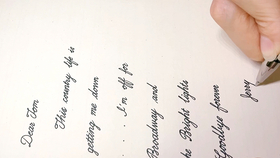 Dear Tom
This country life is
getting me down
. . . . I'm off for
Broadway and
the Bright lights
Goodbye forever
Jerry